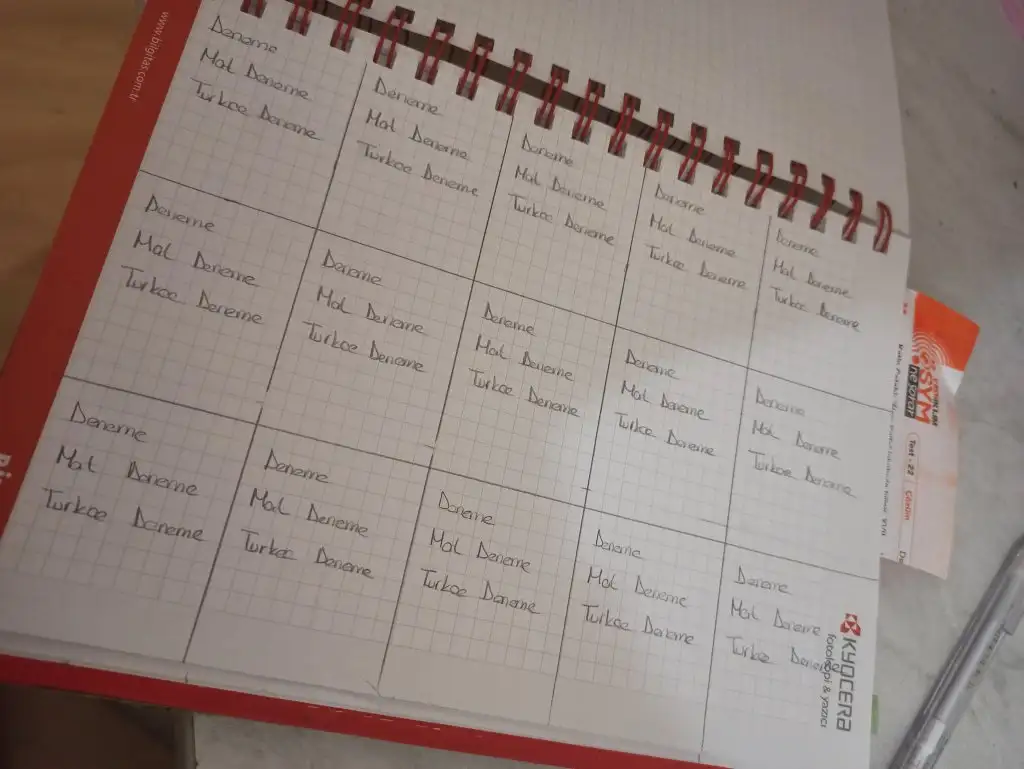 www.bilgitas.com.tr
Deneme
Mat Deneme
Türkçe Deneme
Deneme
Mat Deneme
Türkçe Deneme
Deneme
Mat Deneme
Türkçe Deneme
Deneme
Mat Deneme
Türkçe Deneme
Deneme
Mat Deneme
Türkçe Deneme
Deneme
Mat Deneme
Türkçe Deneme
Deneme
Mat Deneme
Türkçe Deneme
Deneme
Mat Deneme
Türkçe Deneme
Deneme
Mat Deneme
Türkçe Deneme
Deneme
Mat Deneme
Türkçe Deneme
Deneme
Mat Deneme
Türkçe Deneme
Deneme
Mat Deneme
Türkçe Deneme
Deneme
Mat Deneme
Türkçe Deneme
Deneme
Mat Deneme
Türkçe Deneme
Deneme
Mat Deneme
Türkçe Deneme
KYOCERA
fotokopi & yazıcı
ÖSYM
Test - 22